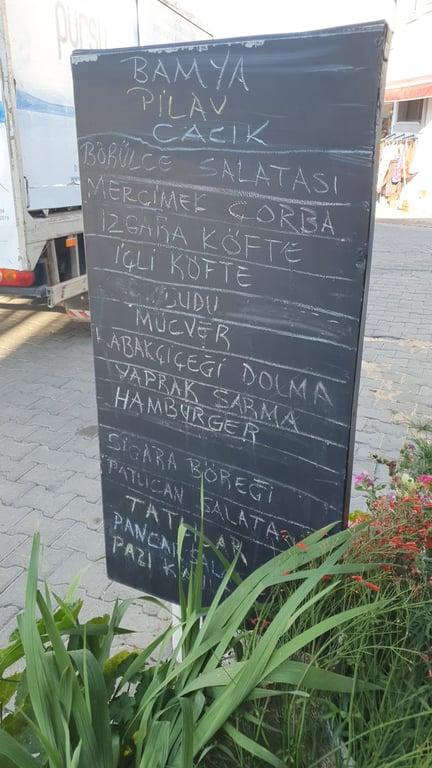 pursu
BAMYA
PİLAV
CACIK
BÖRÜLCE SALATASI
MERCİMEK ÇORBA
İZGARA KÖFTE
İÇLİ KÖFTE
BUDU
MÜCVER
KABAKÇİÇEĞİ DOLMA
YAPRAK SARMA
HAMBURGER
SİGARA BÖREĞİ
PATLICAN SALATA
PANCAR
PAZI